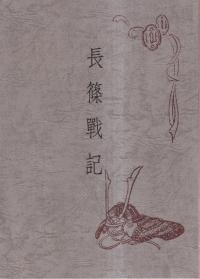 長篠戰記